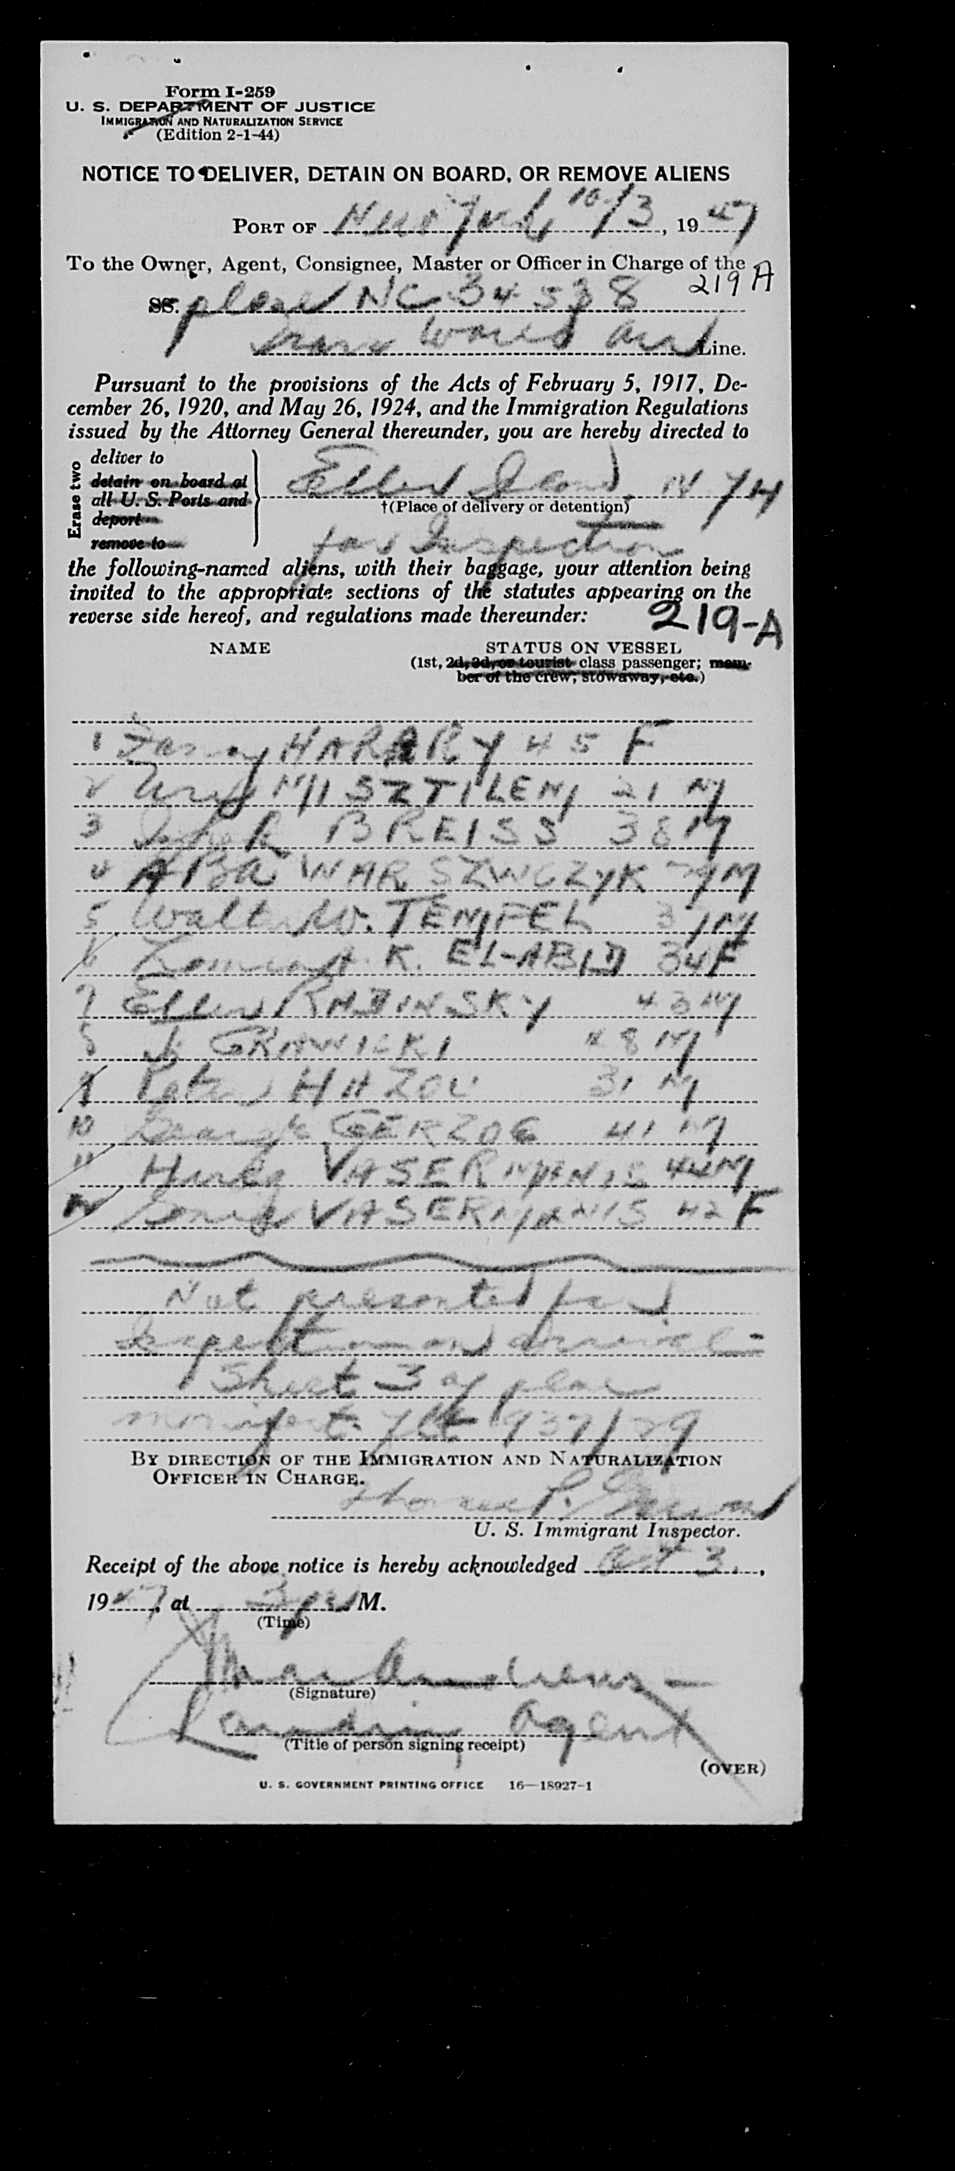 Form I-259
U. S. DEPARTMENT OF JUSTICE
IMMIGRATION AND NATURALIZATION SERVICE
(Edition 2-1-44)
NOTICE TO DELIVER, DETAIN ON BOARD, OR REMOVE ALIENS
PORT OF New York 10/3, 1947
To the Owner, Agent, Consignee, Master or Officer in Charge of the
219 A
SS. plane NC 34538
Trans World Air Line.
Pursuant to the provisions of the Acts of February 5, 1917, De-
cember 26, 1920, and May 26, 1924, and the Immigration Regulations
issued by the Attorney General thereunder, you are hereby directed to
Erase two
deliver to
detain on board at
all U. S. Ports and
deport
remove to
Ellis Island, N Y H
†(Place of delivery or detention)
for Inspection
the following-named aliens, with their baggage, your attention being
invited to the appropriate sections of the statutes appearing on the
reverse side hereof, and regulations made thereunder:
219-A
NAME STATUS ON VESSEL
(1st, 2d, 3d, or tourist class passenger; mem-
ber of the crew, stowaway, etc.)
1 Fanny HARARRY 45 F
2 MISZTILENI 21 M
3 BREISS 38 M
4 ABA WARSZWCZYK M
5 Walter W. TEMPFEL 31 M
6 A. K. EL-ABID 34 F
7 RADINSKY 43 M
8 GRAWICKI 48 M
9 Peter HAZOU 31 M
10 George GERZOG 41 M
11 VASERMANIS 44 M
12 VASERMANIS 42 F
Not presented for
Inspection on arrival -
Sheet 3 of plane
manifest. 937/29
BY DIRECTION OF THE IMMIGRATION AND NATURALIZATION
OFFICER IN CHARGE.
U. S. Immigrant Inspector.
Receipt of the above notice is hereby acknowledged Oct 3,
1947, at 3 p M.
(Time)
Andrews
(Signature)
Landing Agent
(Title of person signing receipt)
(OVER)
U. S. GOVERNMENT PRINTING OFFICE 16—18927-1